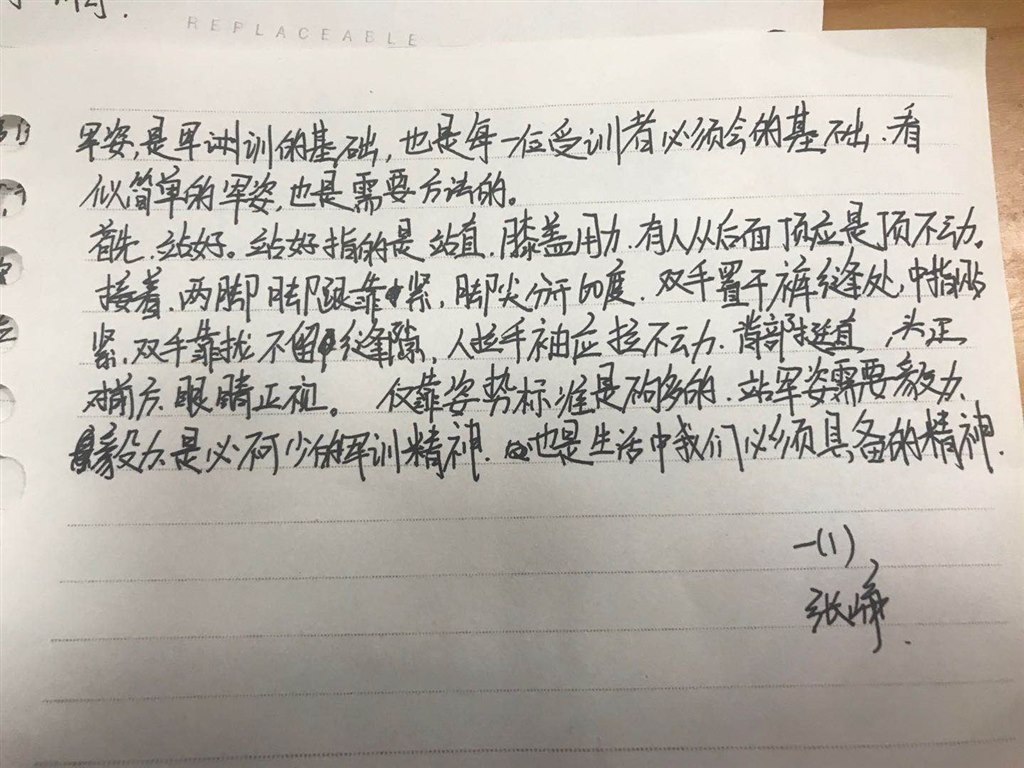 REPLACEABLE
军姿,是军训训的基础,也是每一位受训者必须会的基础、看
似简单的军姿,也是需要方法的。
首先、站好。站好指的是站直、膝盖用力、有人从后面顶应是顶不动。
接着、两脚脚跟靠紧、脚尖分开60度、双手置于裤缝处,中指贴
紧、双手靠拢不留缝隙、人拉手袖应拉不动、背部挺直,头正
对前方、眼睛正视。 仅靠姿势标准是不够多的、站军姿需要毅力、
毅力是必不可少的军训精神、也是生活中我们必须具备的精神.
一(1)
张峰.